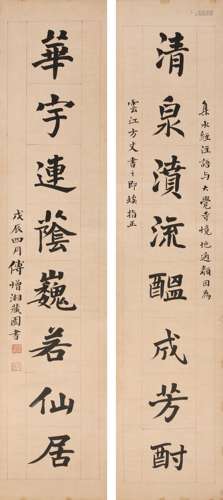 清泉濆流醞成芳酎
集水經注語與大覺寺境地適類因為
雲江方丈書之即矦指正
華宇連蔭巍若仙居
戊辰四月傅增湘藏園書